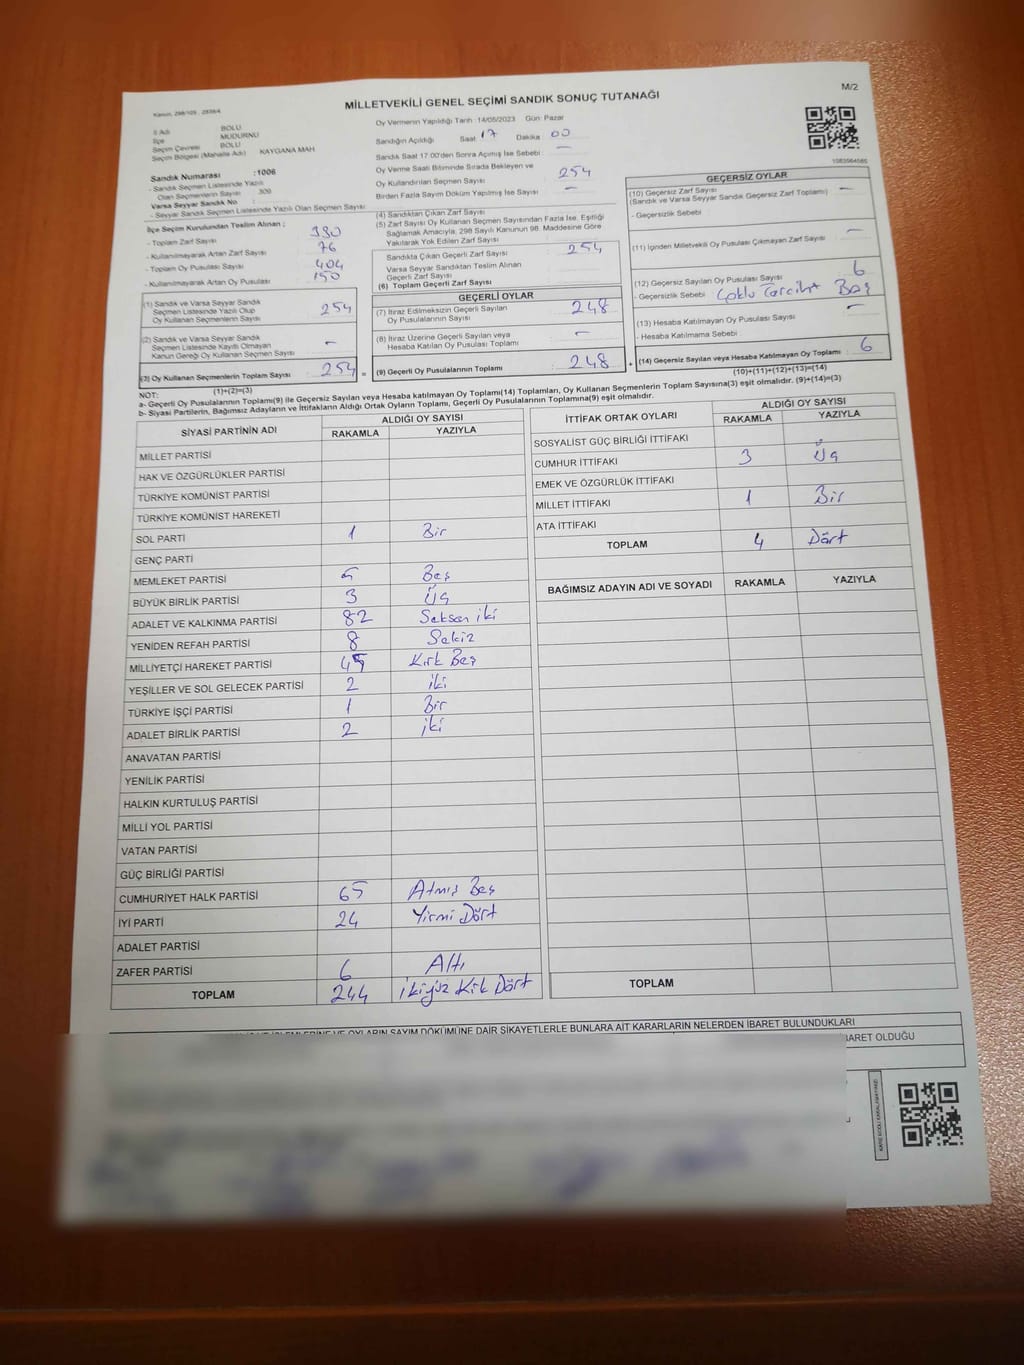 M/2
Kanun, 298/105 , 2839/4
MİLLETVEKİLİ GENEL SEÇİMİ SANDIK SONUÇ TUTANAĞI
İl Adı BOLU
İlçe MUDURNU
Seçim Çevresi BOLU
Seçim Bölgesi (Mahalle Adı) KAYGANA MAH
Sandık Numarası :1006
- Sandık Seçmen Listesinde Yazılı
Olan Seçmenlerin Sayısı 309
Varsa Seyyar Sandık No :
- Seyyar Sandık Seçmen Listesinde Yazılı Olan Seçmen Sayısı
İlçe Seçim Kurulundan Teslim Alınan ;
- Toplam Zarf Sayısı 330
- Kullanılmayarak Artan Zarf Sayısı 76
- Toplam Oy Pusulası Sayısı 404
- Kullanılmayarak Artan Oy Pusulası 150
(1) Sandık ve Varsa Seyyar Sandık
Seçmen Listesinde Yazılı Olup
Oy Kullanan Seçmenlerin Sayısı 254
(2) Sandık ve Varsa Seyyar Sandık
Seçmen Listesinde Kayıtlı Olmayan
Kanun Gereği Oy Kullanan Seçmen Sayısı -
(3) Oy Kullanan Seçmenlerin Toplam Sayısı 254 =
(1)+(2)=(3)
Oy Vermenin Yapıldığı Tarih : 14/05/2023 Gün: Pazar
Sandığın Açıldığı Saat 17 Dakika : 00
Sandık Saat 17:00'den Sonra Açılmış İse Sebebi : -
Oy Verme Saati Bitiminde Sırada Bekleyen ve
Oy Kullandırılan Seçmen Sayısı 254
Birden Fazla Sayım Döküm Yapılmış İse Sayısı -
(4) Sandıktan Çıkan Zarf Sayısı
(5) Zarf Sayısı Oy Kullanan Seçmen Sayısından Fazla İse, Eşitliği
Sağlamak Amacıyla, 298 Sayılı Kanunun 98. Maddesine Göre
Yakılarak Yok Edilen Zarf Sayısı
Sandıkta Çıkan Geçerli Zarf Sayısı 254
Varsa Seyyar Sandıktan Teslim Alınan
Geçerli Zarf Sayısı
(6) Toplam Geçerli Zarf Sayısı
GEÇERLİ OYLAR
(7) İtiraz Edilmeksizin Geçerli Sayılan
Oy Pusulalarının Sayısı 248
(8) İtiraz Üzerine Geçerli Sayılan veya
Hesaba Katılan Oy Pusulası Toplamı -
(9) Geçerli Oy Pusulalarının Toplamı 248 +
1083964565
GEÇERSİZ OYLAR
(10) Geçersiz Zarf Sayısı
(Sandık ve Varsa Seyyar Sandık Geçersiz Zarf Toplamı) -
- Geçersizlik Sebebi
(11) İçinden Milletvekili Oy Pusulası Çıkmayan Zarf Sayısı -
(12) Geçersiz Sayılan Oy Pusulası Sayısı 6
- Geçersizlik Sebebi Çoklu Tercih Boş
(13) Hesaba Katılmayan Oy Pusulası Sayısı -
- Hesaba Katılmama Sebebi
(14) Geçersiz Sayılan veya Hesaba Katılmayan Oy Toplamı 6
(10)+(11)+(12)+(13)=(14)
NOT:
a- Geçerli Oy Pusulalarının Toplamı(9) ile Geçersiz Sayılan veya Hesaba katılmayan Oy Toplamı(14) Toplamları, Oy Kullanan Seçmenlerin Toplam Sayısına(3) eşit olmalıdır. (9)+(14)=(3)
b- Siyasi Partilerin, Bağımsız Adayların ve İttifakların Aldığı Ortak Oyların Toplamı, Geçerli Oy Pusulalarının Toplamına(9) eşit olmalıdır.
SİYASİ PARTİNİN ADI ALDIĞI OY SAYISI
RAKAMLA YAZIYLA
MİLLET PARTİSİ
HAK VE ÖZGÜRLÜKLER PARTİSİ
TÜRKİYE KOMÜNİST PARTİSİ
TÜRKİYE KOMÜNİST HAREKETİ
SOL PARTİ 1 Bir
GENÇ PARTİ
MEMLEKET PARTİSİ 5 Beş
BÜYÜK BİRLİK PARTİSİ 3 Üç
ADALET VE KALKINMA PARTİSİ 82 Seksen iki
YENİDEN REFAH PARTİSİ 8 Sekiz
MİLLİYETÇİ HAREKET PARTİSİ 45 Kırk Beş
YEŞİLLER VE SOL GELECEK PARTİSİ 2 iki
TÜRKİYE İŞÇİ PARTİSİ 1 Bir
ADALET BİRLİK PARTİSİ 2 iki
ANAVATAN PARTİSİ
YENİLİK PARTİSİ
HALKIN KURTULUŞ PARTİSİ
MİLLİ YOL PARTİSİ
VATAN PARTİSİ
GÜÇ BİRLİĞİ PARTİSİ
CUMHURİYET HALK PARTİSİ 65 Atmış Beş
İYİ PARTİ 24 Yirmi Dört
ADALET PARTİSİ
ZAFER PARTİSİ 6 Altı
TOPLAM 244 ikiyüz Kırk Dört
İTTİFAK ORTAK OYLARI ALDIĞI OY SAYISI
RAKAMLA YAZIYLA
SOSYALİST GÜÇ BİRLİĞİ İTTİFAKI
CUMHUR İTTİFAKI 3 Üç
EMEK VE ÖZGÜRLÜK İTTİFAKI
MİLLET İTTİFAKI 1 Bir
ATA İTTİFAKI
TOPLAM 4 Dört
BAĞIMSIZ ADAYIN ADI VE SOYADI RAKAMLA YAZIYLA
TOPLAM
OYLARIN SAYIM DÖKÜMÜNE DAİR ŞİKAYETLERLE BUNLARA AİT KARARLARIN NELERDEN İBARET BULUNDUKLARI
İBARET OLDUĞU